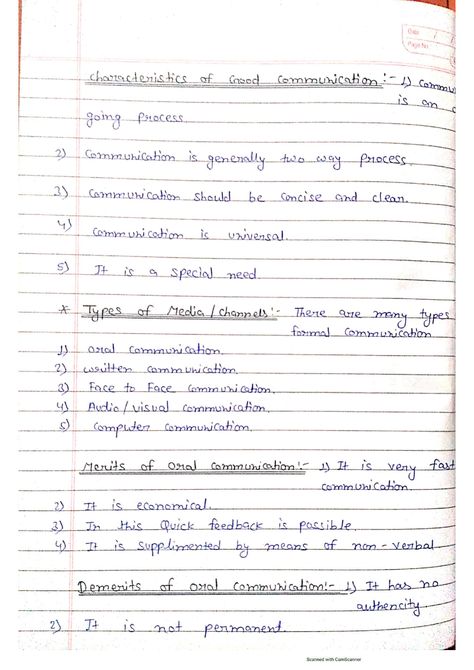 Date / /
Page No.
Characteristics of Good Communication :- 1) Commu
is an o
going process.
2) Communication is generally two way process.
3) Communication should be concise and clear.
4) Communication is universal.
5) It is a special need.
* Types of Media / Channels :- There are many types
formal communication
1) oral communication.
2) written communication.
3) Face to Face communication.
4) Audio / visual communication.
5) Computer communication.
Merits of oral communication :- 1) It is very fast
communication.
2) It is economical.
3) In this Quick feedback is possible.
4) It is supplimented by means of non-verbal
Demerits of oral communication :- 1) It has no
authencity.
2) It is not permanent.
Scanned with CamScanner